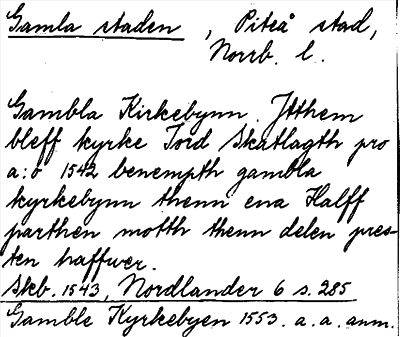 Gamla staden, Piteå stad,
Norrb. l.
Gambla Kirkebynn. Jtthem
bleff kyrke Jord Skatlagth pro
a:o 1542 benempth gambla
kyrkebynn thenn ena Halff
parthen motth thenn delen pres-
ten haffwer.
Skb. 1543, Nordlander 6 s. 285
Gamble Kyrkebyen 1553. a. a. anm.